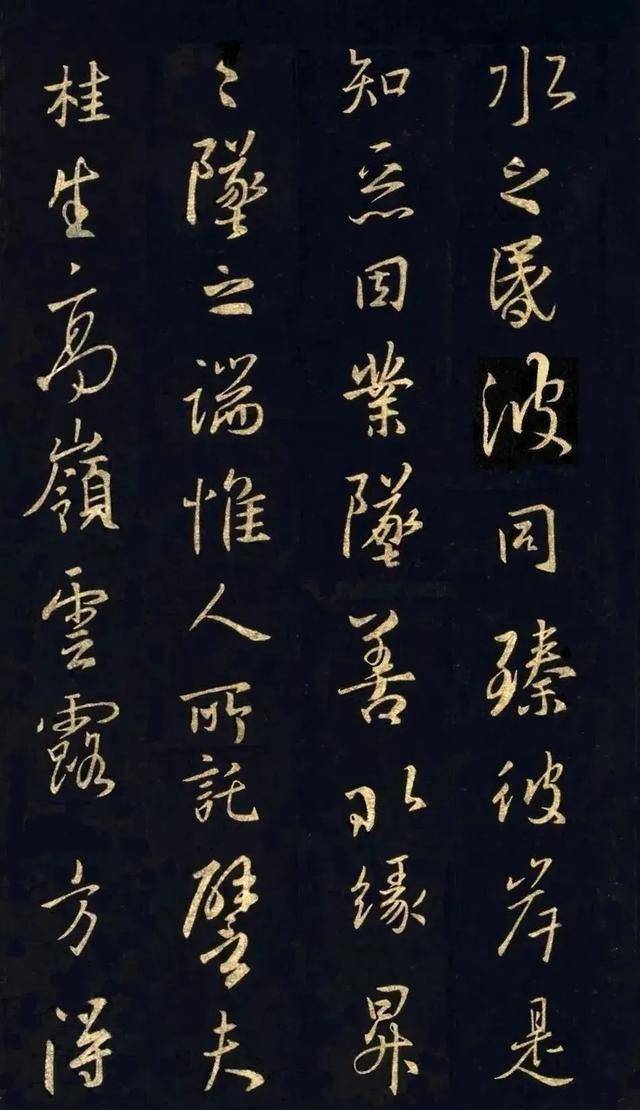 水之昬波同臻彼岸是
知惡因業墜善以緣昇
〻墜之端惟人所託譬夫
桂生高嶺雲露方得